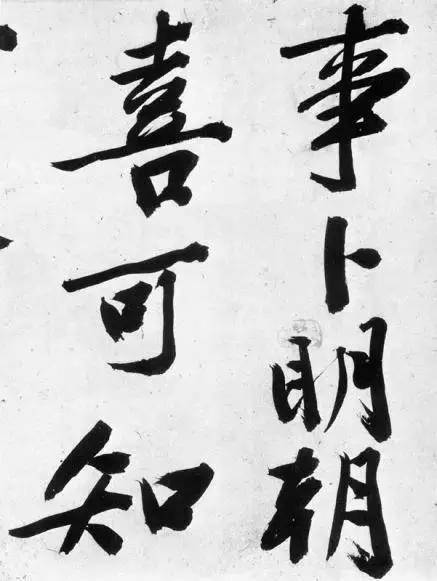 事卜明朝
喜可知